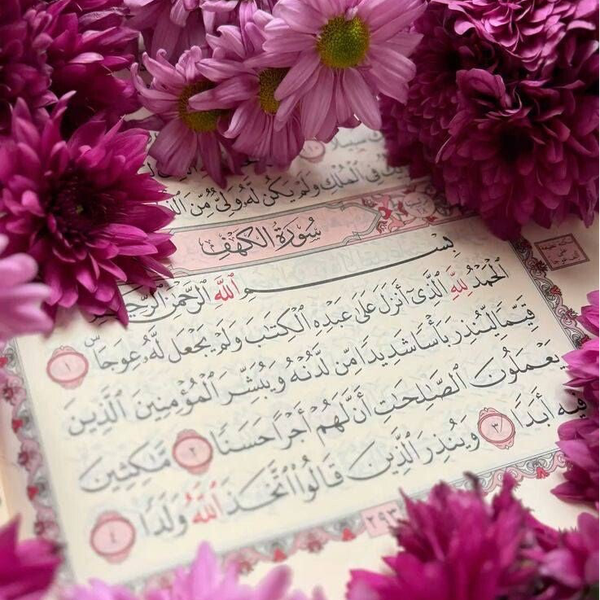 فِى ٱلْمُلْكِ وَلَمْ يَكُن لَّهُۥ وَلِىٌّ مِّنَ
سُورَةُ الكَهْفِ
بِسْمِ ٱللَّهِ ٱلرَّحْمَٰنِ ٱلرَّحِيمِ
ٱلْحَمْدُ لِلَّهِ ٱلَّذِىٓ أَنزَلَ عَلَىٰ عَبْدِهِ ٱلْكِتَٰبَ وَلَمْ يَجْعَل لَّهُۥ عِوَجَاۜ ١
قَيِّمًا لِّيُنذِرَ بَأْسًا شَدِيدًا مِّن لَّدُنْهُ وَيُبَشِّرَ ٱلْمُؤْمِنِينَ ٱلَّذِينَ
يَعْمَلُونَ ٱلصَّٰلِحَٰتِ أَنَّ لَهُمْ أَجْرًا حَسَنًا ٢ مَّٰكِثِينَ
فِيهِ أَبَدًا ٣ وَيُنذِرَ ٱلَّذِينَ قَالُوا۟ ٱتَّخَذَ ٱللَّهُ وَلَدًا ٤
٢٩٣